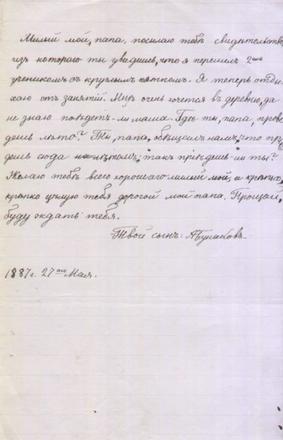 Милый мой, папа, посылаю тебѣ свидетельство
изъ котораго ты увидишь, что я перешелъ 2ымъ
ученикомъ съ круглымъ пяткомъ. Я теперь отды-
хаю отъ занятій. Мнѣ очень хочется въ деревню, да
не знаю поѣдетъ-ли мама. Гдѣ ты, папа, прове-
дешь лѣто? Ты, папа, обѣщался намъ, что прі-
дешь сюда такъ пріѣдешь-ли ты?
Желаю тебѣ всего хорошаго милый мой, и крѣпко,
крѣпко цѣлую тебя дорогой мой папа. Прощай,
буду ждать тебя.
Твой сынъ
1887г. 27го Мая.